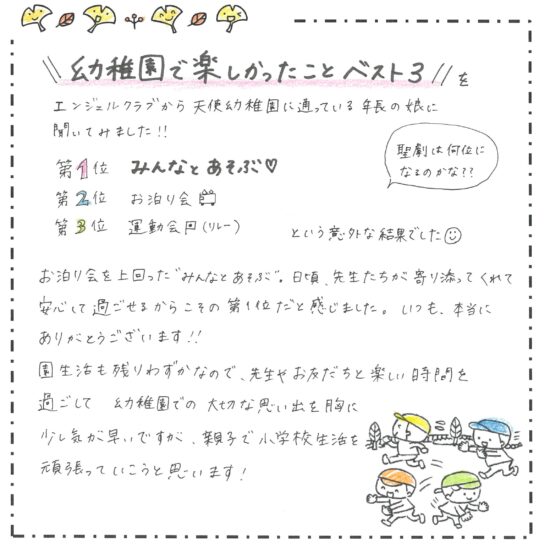 \\ 幼稚園で楽しかったこと ベスト3 // を
エンジェルクラブから天使幼稚園に通っている年長の娘に
聞いてみました!!
聖劇は何位に
なるのかな??
第1位 みんなとあそぶ♡
第2位 お泊り会
第3位 運動会(リレー)
という意外な結果でした☺
お泊り会を上回った"みんなとあそぶ"。日頃、先生たちが寄り添ってくれて
安心して過ごせるからこその第1位だと感じました。いつも、本当に
ありがとうございます!!
園生活も残りわずかなので、先生やお友だちと楽しい時間を
過ごして 幼稚園での大切な思い出を胸に
少し気が早いですが、親子で小学校生活を
頑張っていこうと思います!